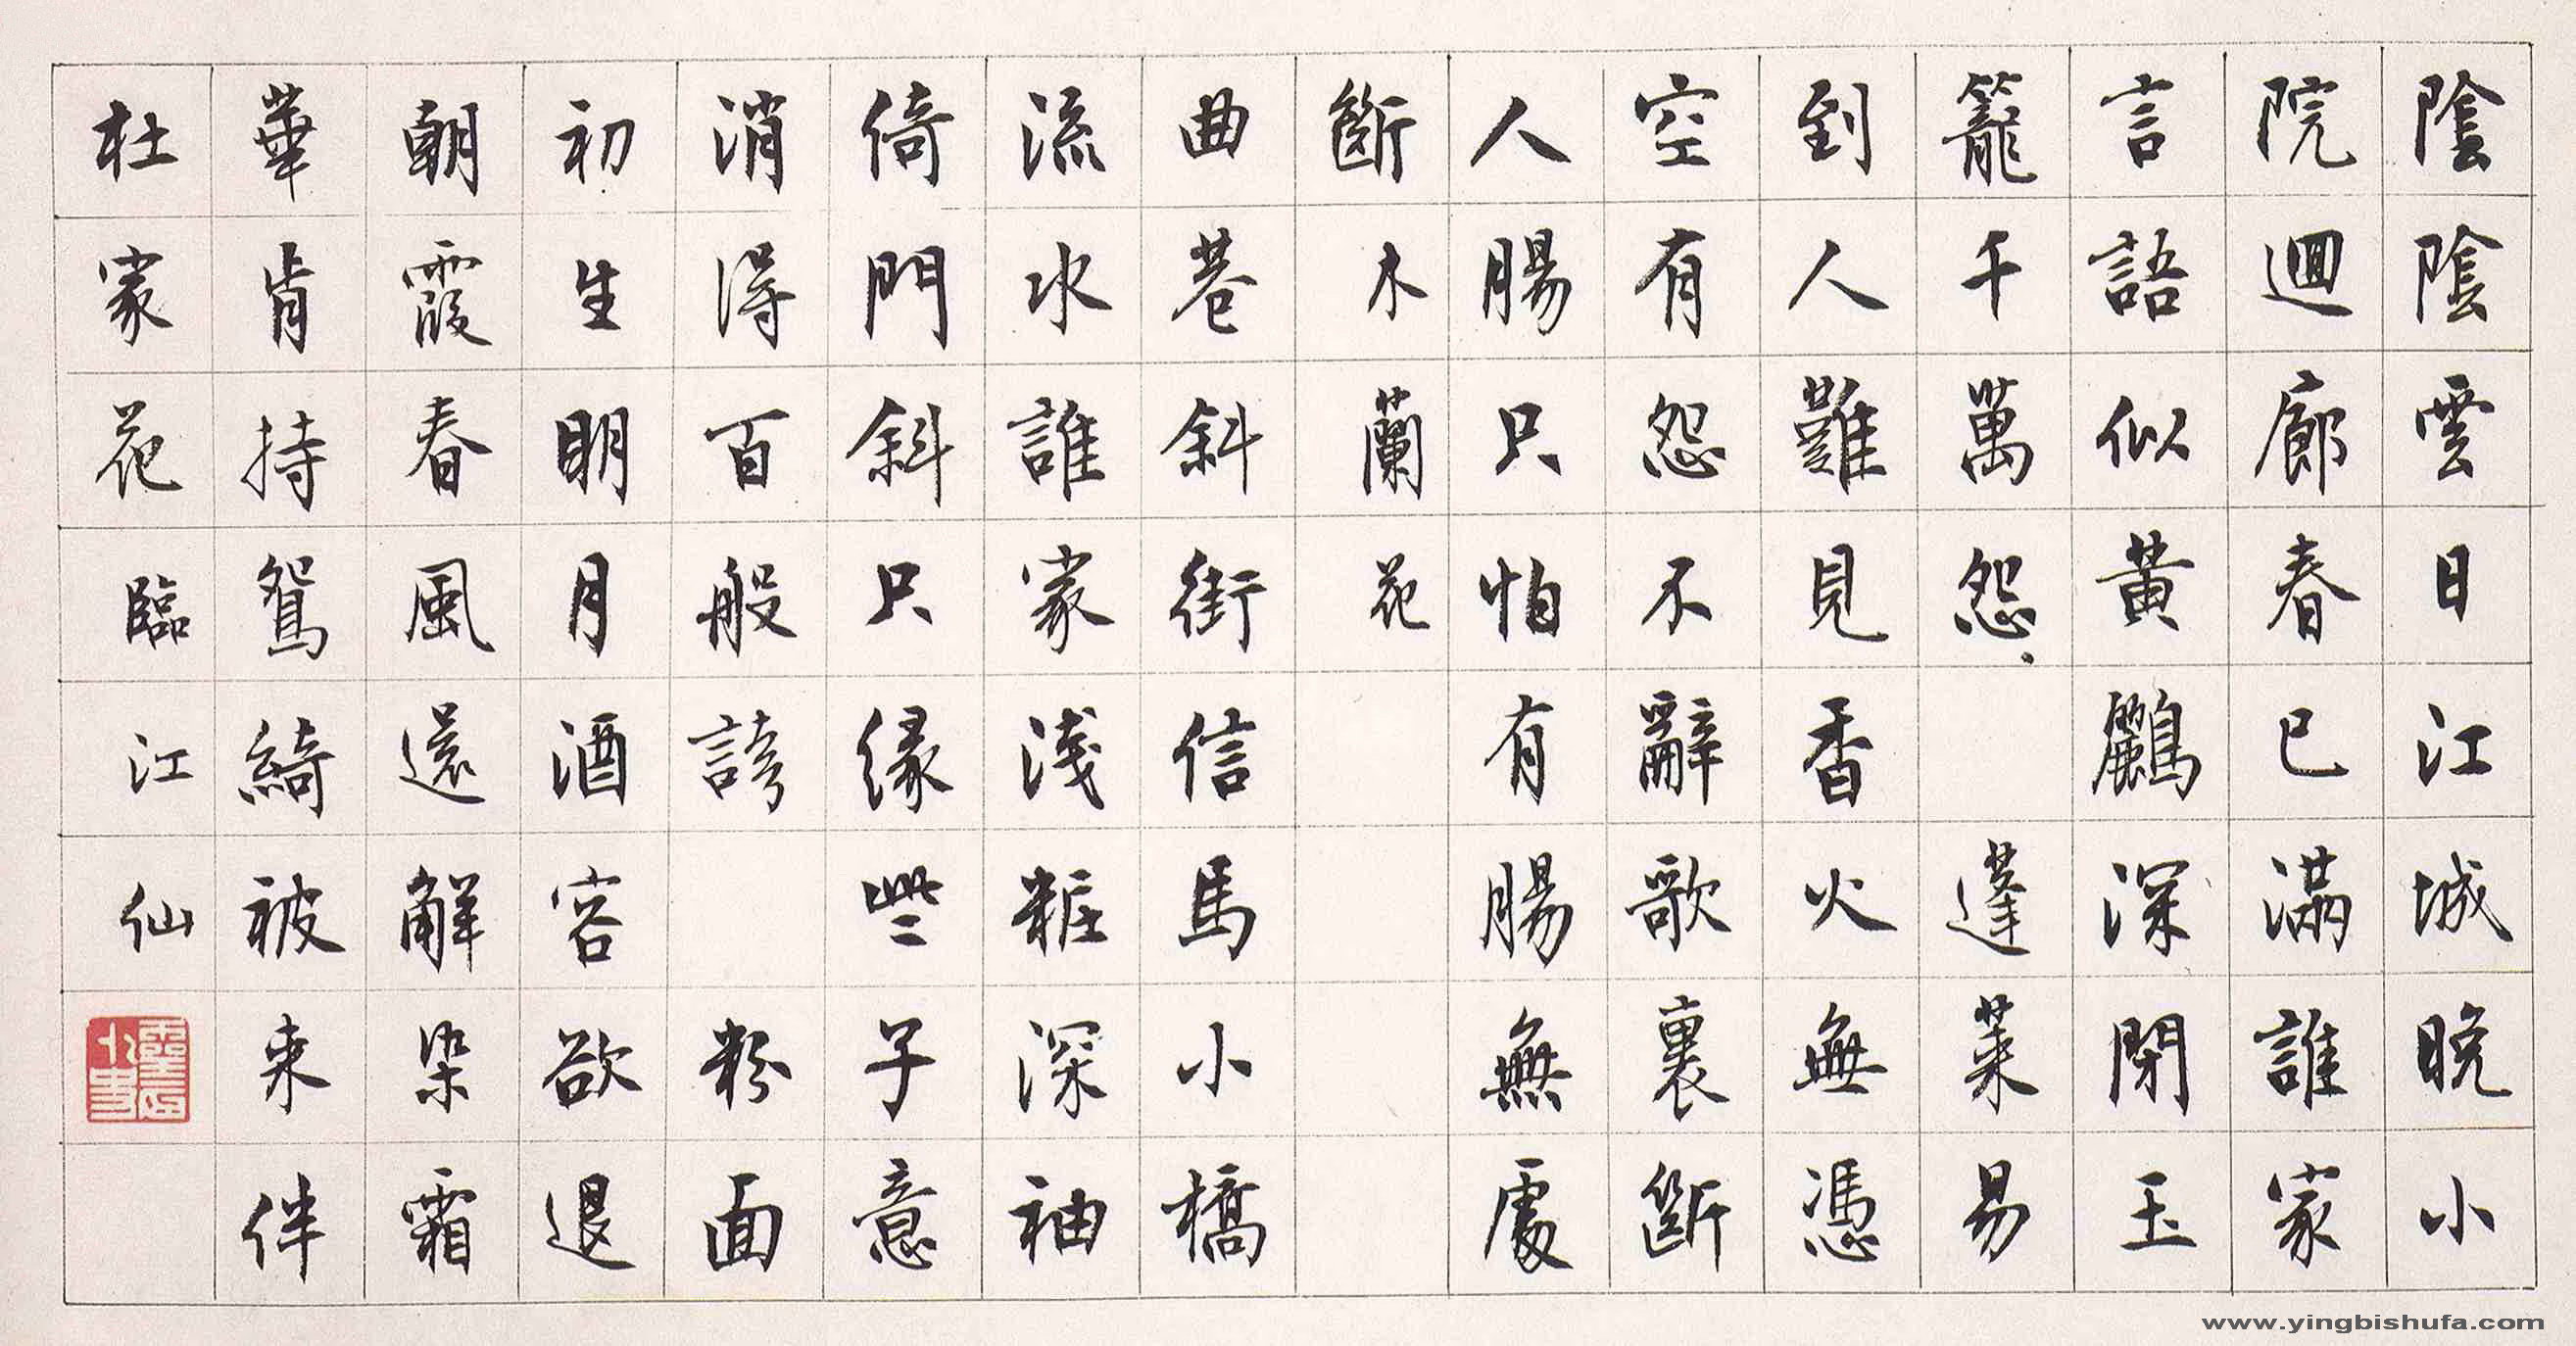 陰陰雲日江城晚小
院迴廊春已滿誰家
言語似黃鸝深閉玉
籠千萬怨 蓬萊易
到人難見香火無憑
空有怨不辭歌裏斷
人腸只怕有腸無處
斷木蘭花
曲巷斜街信馬小橋
流水誰家淺粧深袖
倚門斜只緣些子意
消得百般誇 粉面
初生明月酒容欲退
朝霞春風還解染霜
華肯持鴛綺被来伴
杜家花臨江仙
www.yingbishufa.com